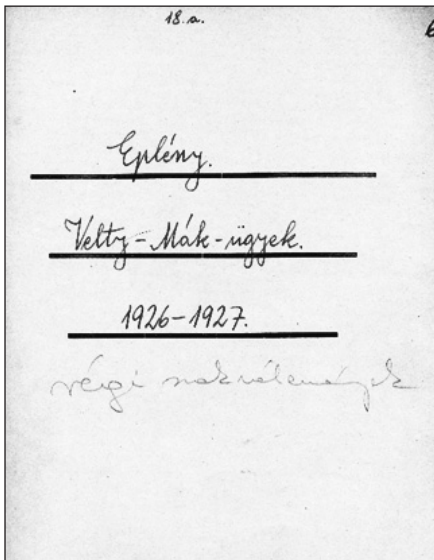 18. a.
6
Eplény.
Velty-Mák-ügyek.
1926-1927.
régi szakvélemények